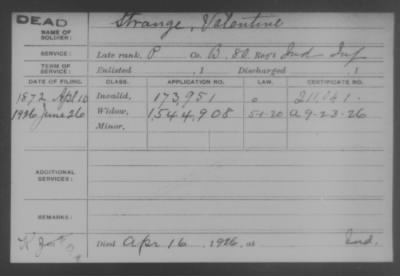 DEAD
NAME OF SOLDIER: Strange, Valentine
SERVICE: Late rank, P Co. B, 80 Reg't Ind Inf
TERM OF SERVICE: Enlisted , 1 Discharged , 1
DATE OF FILING. CLASS. APPLICATION NO. LAW. CERTIFICATE NO.
1872 Apl 10 Invalid, 173,951 211,041.
1926 June 26 Widow, 1,544,908 5-1-20 a 9-23-26
Minor,
ADDITIONAL SERVICES:
REMARKS:
Died Apr 16, 1926, at Ind.